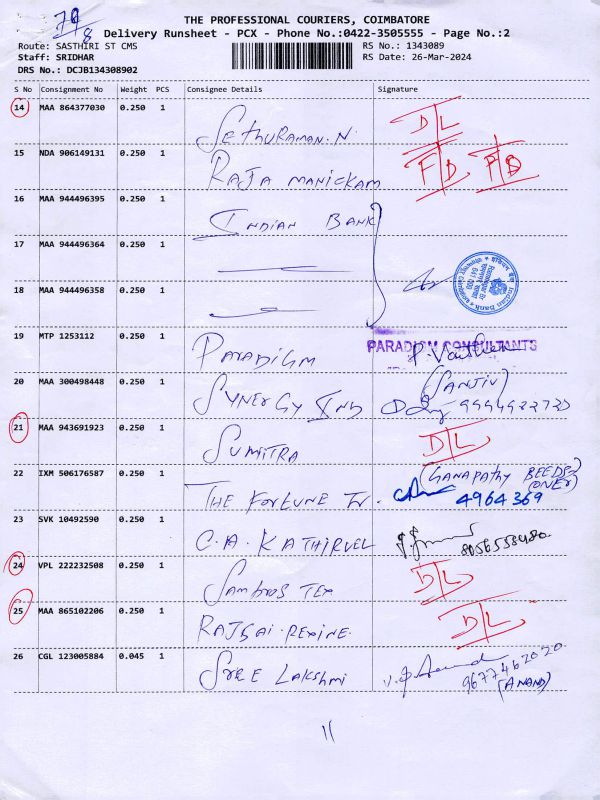 THE PROFESSIONAL COURIERS, COIMBATORE
Delivery Runsheet - PCX - Phone No.:0422-3505555 - Page No.:2
Route: SASTHIRI ST CMS RS No.: 1343089
Staff: SRIDHAR RS Date: 26-Mar-2024
DRS No.: DCJB134308902
S No Consignment No Weight PCS Consignee Details Signature
14 MAA 864377030 0.250 1 SETHURAMAN.N. D L
15 NDA 906149131 0.250 1 RAJA MANICKAM
16 MAA 944496395 0.250 1 INDIAN BANK
17 MAA 944496364 0.250 1
18 MAA 944496358 0.250 1
Indian Bank
641 009
19 MTP 1253112 0.250 1 PARADIGM PARADIGM CONSULTANTS
20 MAA 300498448 0.250 1 SYNERGY IND (SANJIV)
21 MAA 943691923 0.250 1 SUMITRA D L
(GANAPATHY BEEDS)
22 IXM 506176587 0.250 1 THE FORTUNE 4964369
23 SVK 10492590 0.250 1 C.A. KATHIRVEL
24 VPL 222232508 0.250 1 SAMBOS TEX D L
25 MAA 865102206 0.250 1 RAJSAI.REXINE. D L
26 CGL 123005884 0.045 1 SREE LAKSHMI 9677462020
(ANAND)
11